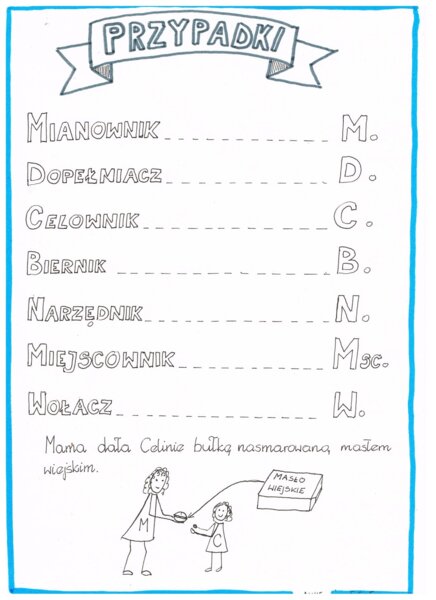 PRZYPADKI
MIANOWNIK M.
DOPEŁNIACZ D.
CELOWNIK C.
BIERNIK B.
NARZĘDNIK N.
MIEJSCOWNIK MSC.
WOŁACZ W.
Mama dała Celinie bułkę nasmarowaną masłem
wiejskim.
MASŁO
WIEJSKIE
M
C